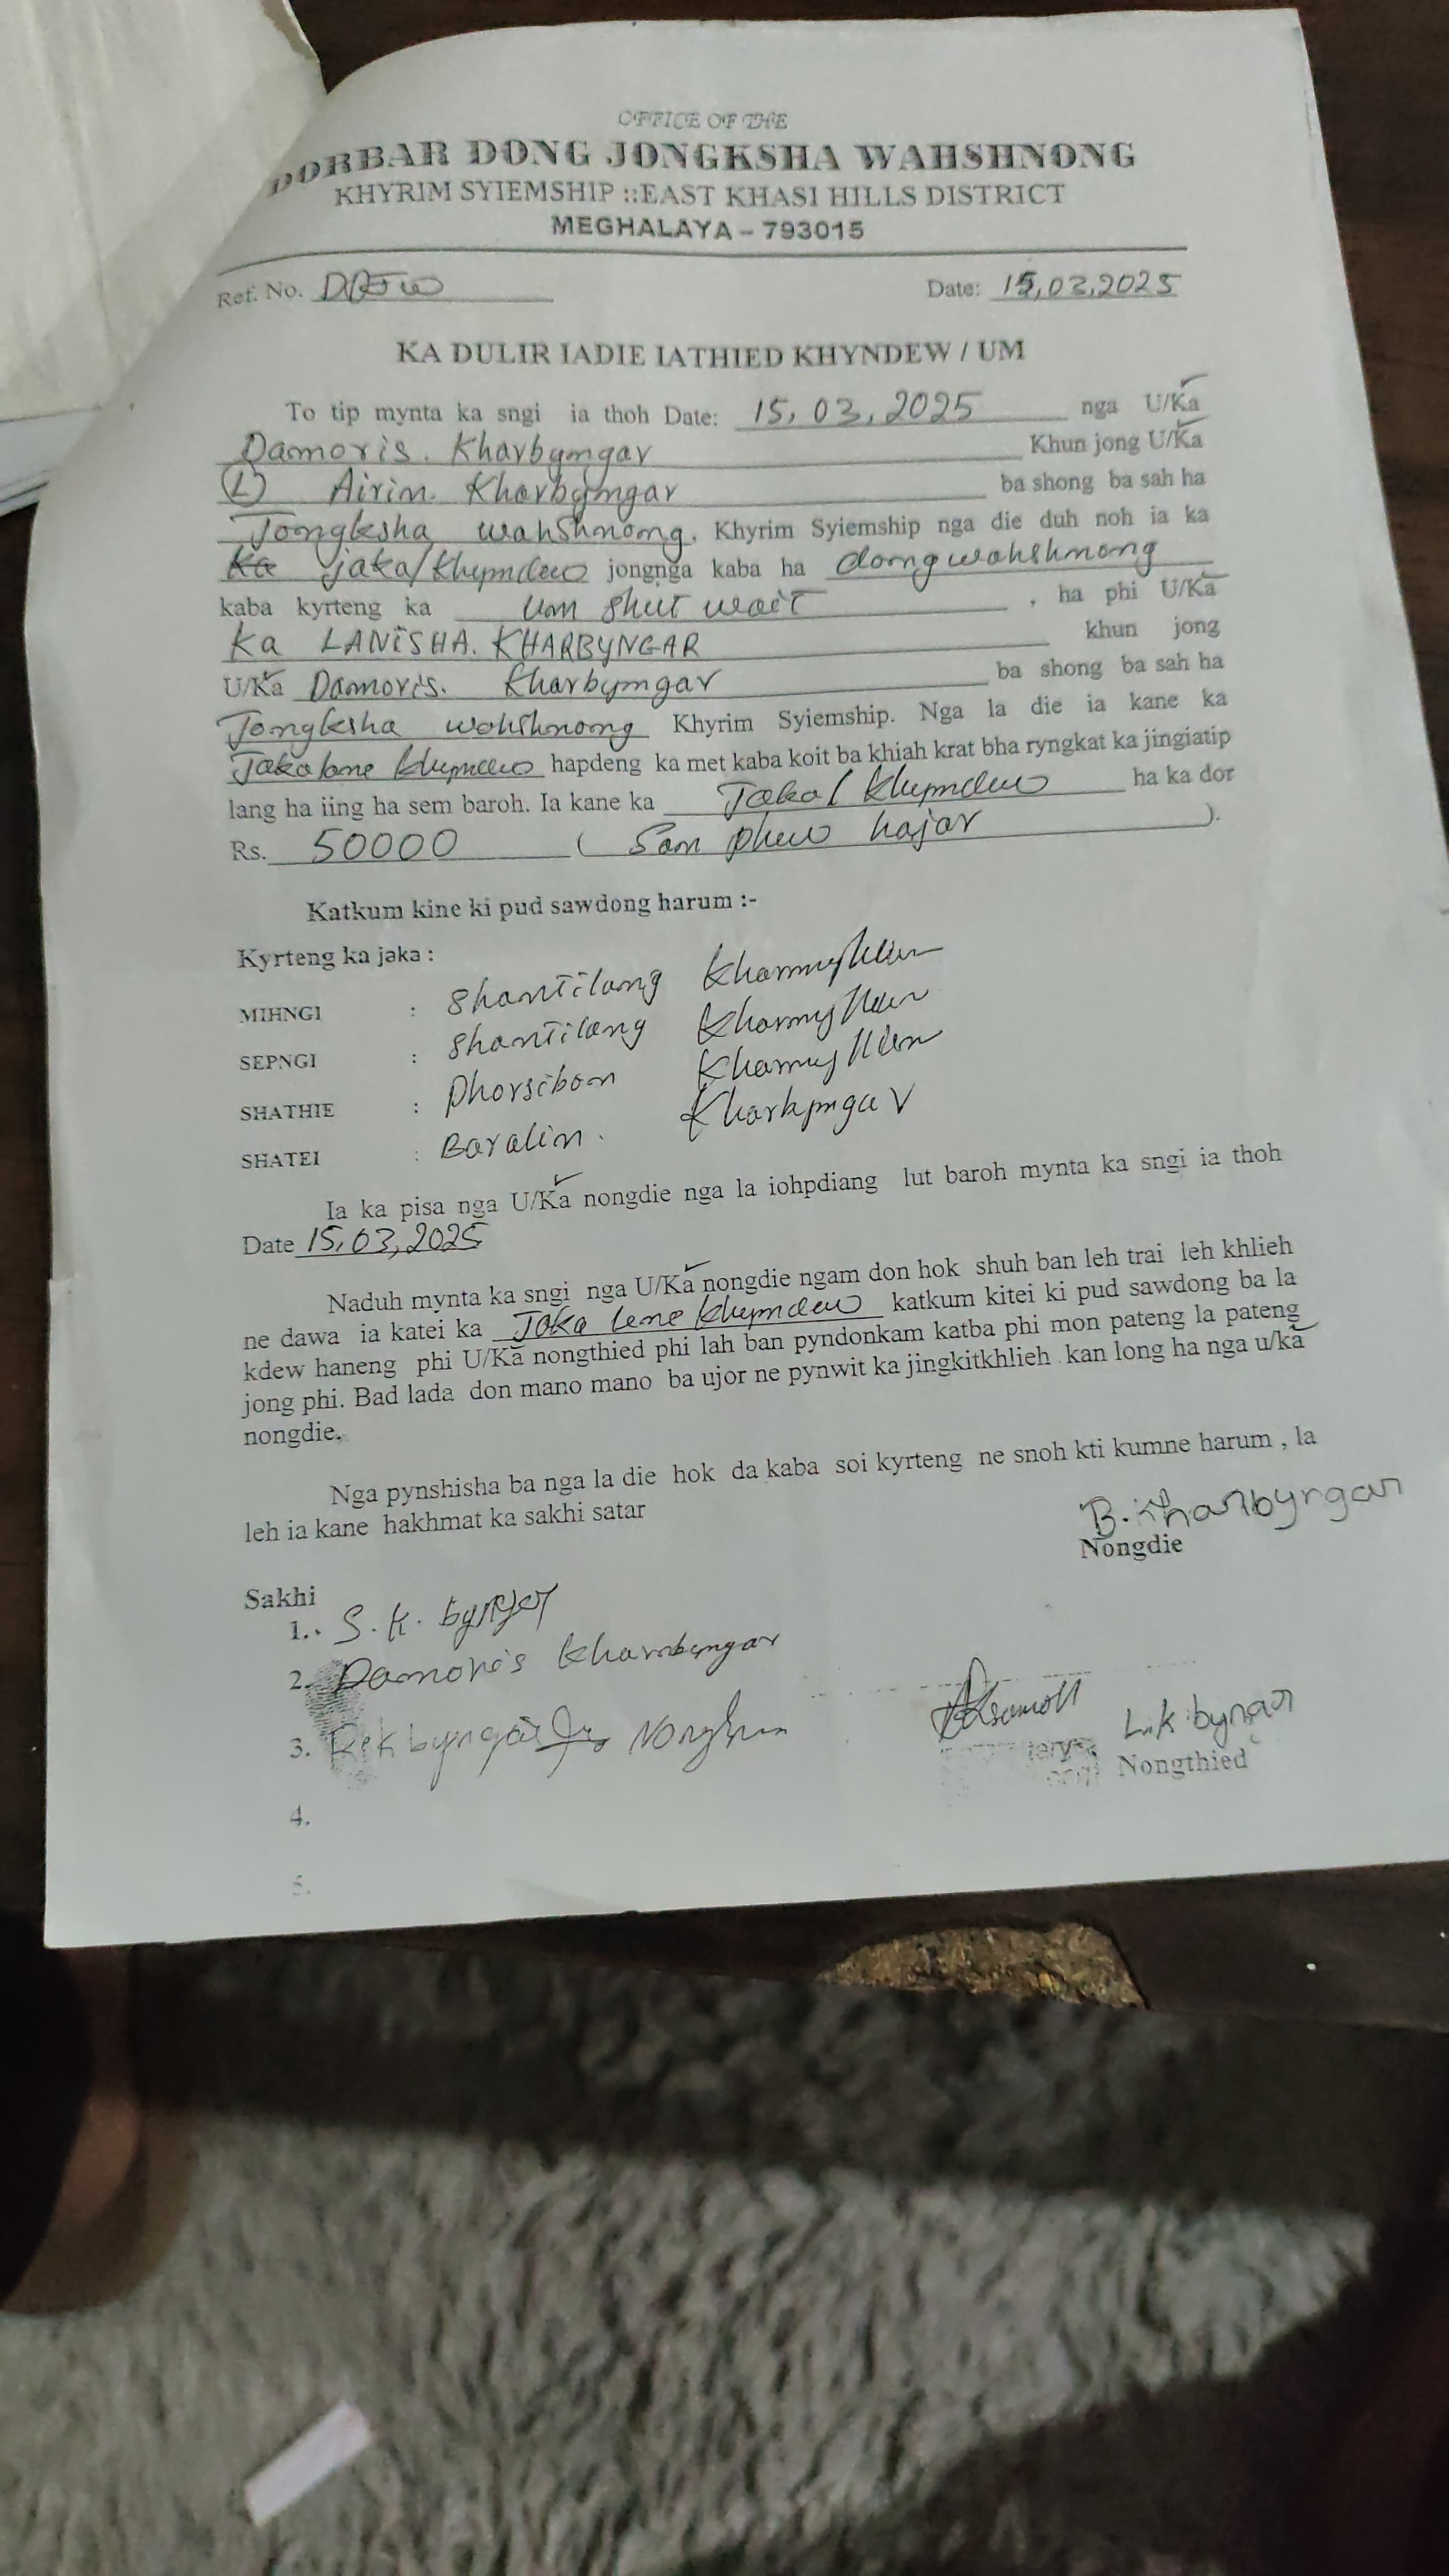 OFFICE OF THE
DORBAR DONG JONGKSHA WAHSHNONG
KHYRIM SYIEMSHIP ::EAST KHASI HILLS DISTRICT
MEGHALAYA – 793015
Ref. No. Date: 15,03,2025
KA DULIR IADIE IATHIED KHYNDEW / UM
To tip mynta ka sngi ia thoh Date: 15,03,2025 nga U/Ka
Damoris. Kharbyngar Khun jong U/Ka
(L) Airin. Kharbyngar ba shong ba sah ha
Jongksha wahshnong. Khyrim Syiemship nga die duh noh ia ka
Ka jaka/khyndew jongnga kaba ha dongwahshnong
kaba kyrteng ka um shut wait , ha phi U/Ka
Ka LANISHA. KHARBYNGAR khun jong
U/Ka Damoris. Kharbyngar ba shong ba sah ha
Jongksha wahshnong Khyrim Syiemship. Nga la die ia kane ka
Jaka lane khyndew hapdeng ka met kaba koit ba khiah krat bha ryngkat ka jingiatip
lang ha iing ha sem baroh. Ia kane ka Jaka/ khyndew ha ka dor
Rs. 50000 ( San phew hajar ).
Katkum kine ki pud sawdong harum :-
Kyrteng ka jaka :
MIHNGI : Shantilang
SEPNGI : Shantilang
SHATHIE :
SHATEI : Baralin.
Ia ka pisa nga U/Ka nongdie nga la iohpdiang lut baroh mynta ka sngi ia thoh
Date 15,03,2025
Naduh mynta ka sngi nga U/Ka nongdie ngam don hok shuh ban leh trai leh khlieh
ne dawa ia katei ka Jaka lane khyndew katkum kitei ki pud sawdong ba la
kdew haneng phi U/Ka nongthied phi lah ban pyndonkam katba phi mon pateng la pateng
jong phi. Bad lada don mano mano ba ujor ne pynwit ka jingkitkhlieh kan long ha nga u/ka
nongdie.
Nga pynshisha ba nga la die hok da kaba soi kyrteng ne snoh kti kumne harum , la
leh ia kane hakhmat ka sakhi satar
B. Kharbyngar
Nongdie
Sakhi
1. S.K.
2. Damoris Kharbyngar
3.
Nongthied
4.
5.